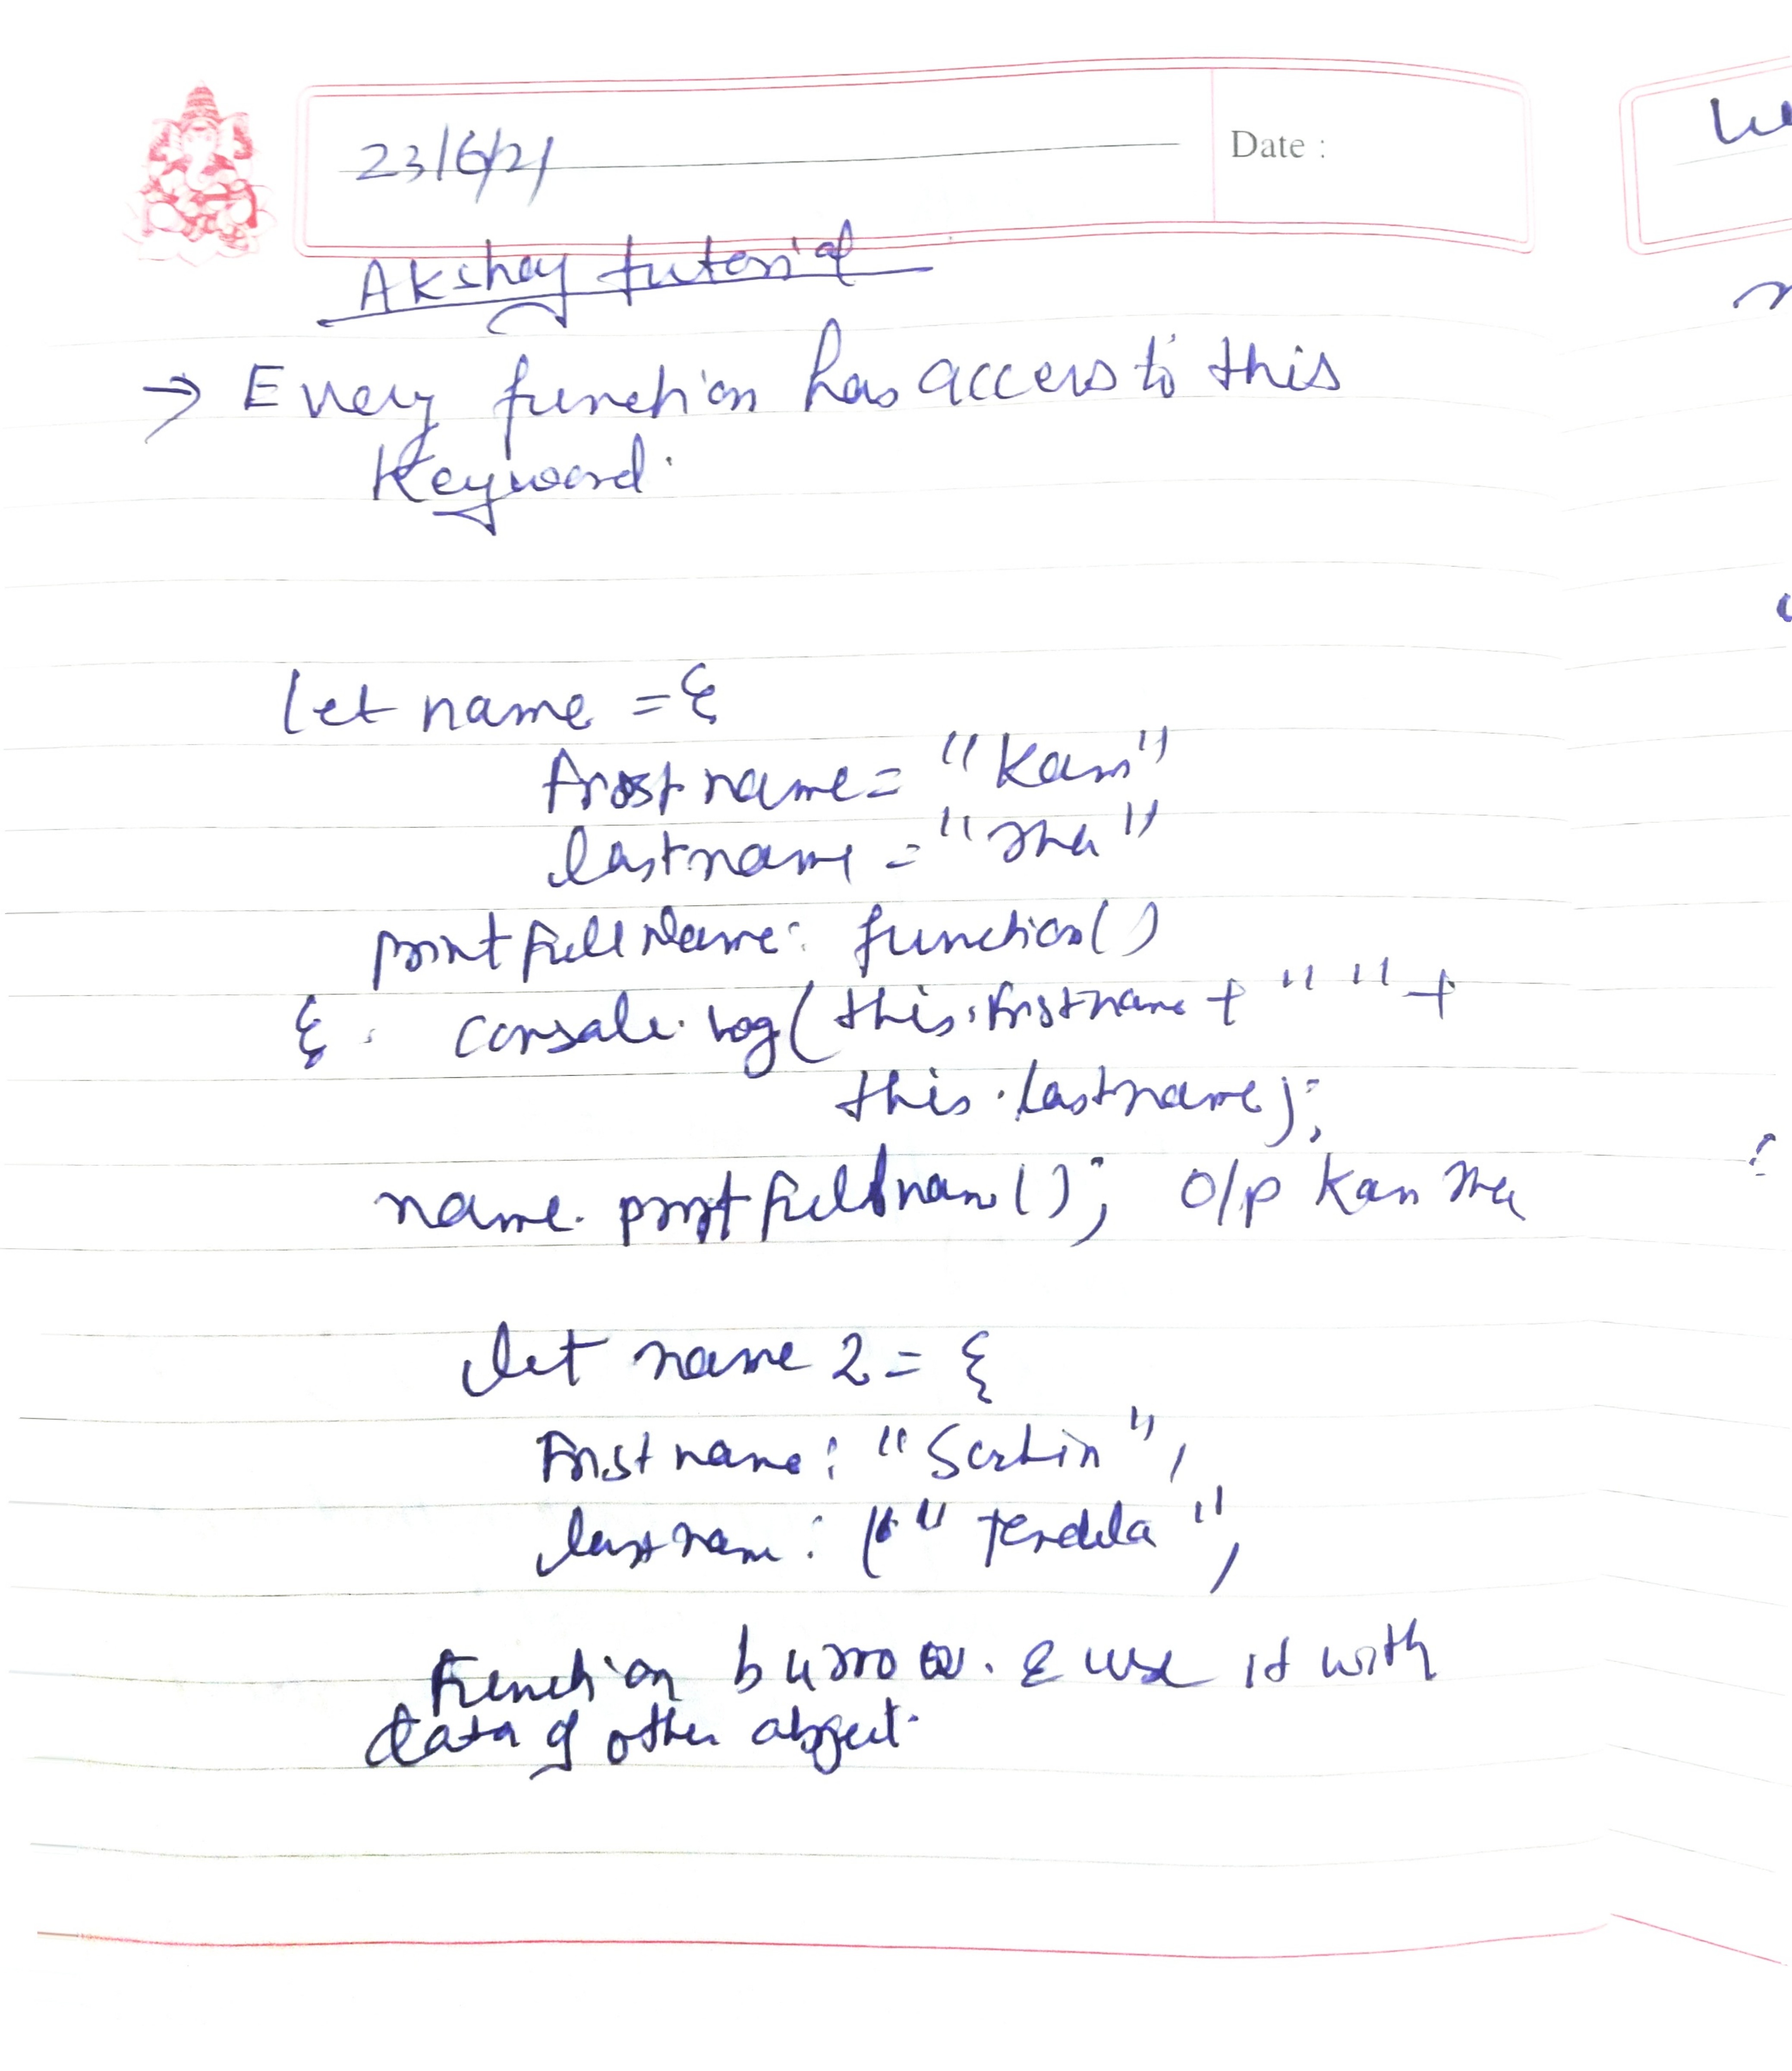 23/6/21
Date :
Akshay tutorial
⇒ Every function has access to this
Keyword.
let name = {
firstname = "Kam"
lastname = "
printfullName: function()
{ . console.log(this.firstname + " " +
this.lastname);
name. printfullname(); O/p Kan
let name 2 = {
Firstname: "
lastname: "
Function burrow. & use it with
data of other object.